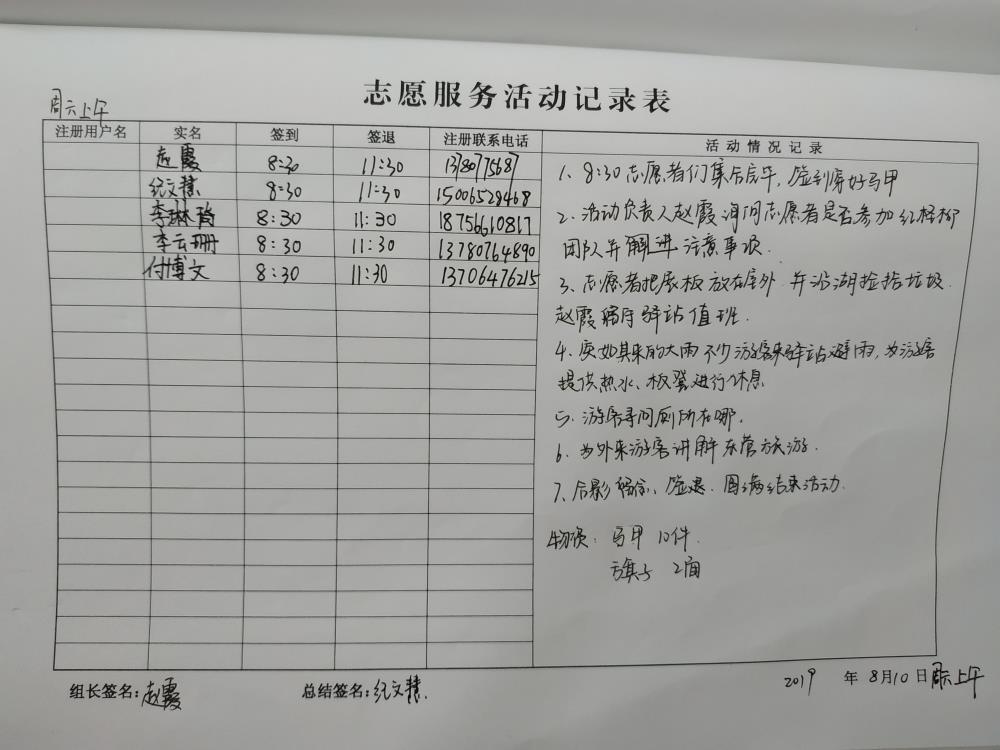 志愿服务活动记录表
周六上午
注册用户名 实名 签到 签退 注册联系电话 活动情况记录
赵霞 8:30 11:30
纪文慧 8:30 11:30 15006529468
李琳 8:30 11:30 18756610817
李云珊 8:30 11:30 13780764890
付博文 8:30 11:30 13706476215
1、8:30志愿者们集合完毕,签到穿好马甲
2、活动负责人赵霞询问志愿者是否参加红柽柳
团队并讲注意事项.
3、志愿者把展板放在室外 并沿湖捡拾垃圾.
赵霞留守驿站值班.
4、突如其来的大雨不少游客来驿站避雨,为游客
提供热水、板凳进行休息
5、游客寻问厕所在哪.
6、为外来游客讲解东营旅游.
7、合影留念、签退.圆满结束活动.
物资: 马甲 10件.
旗子 2面
组长签名:赵霞 总结签名:纪文慧.
2019 年 8月10日周六上午